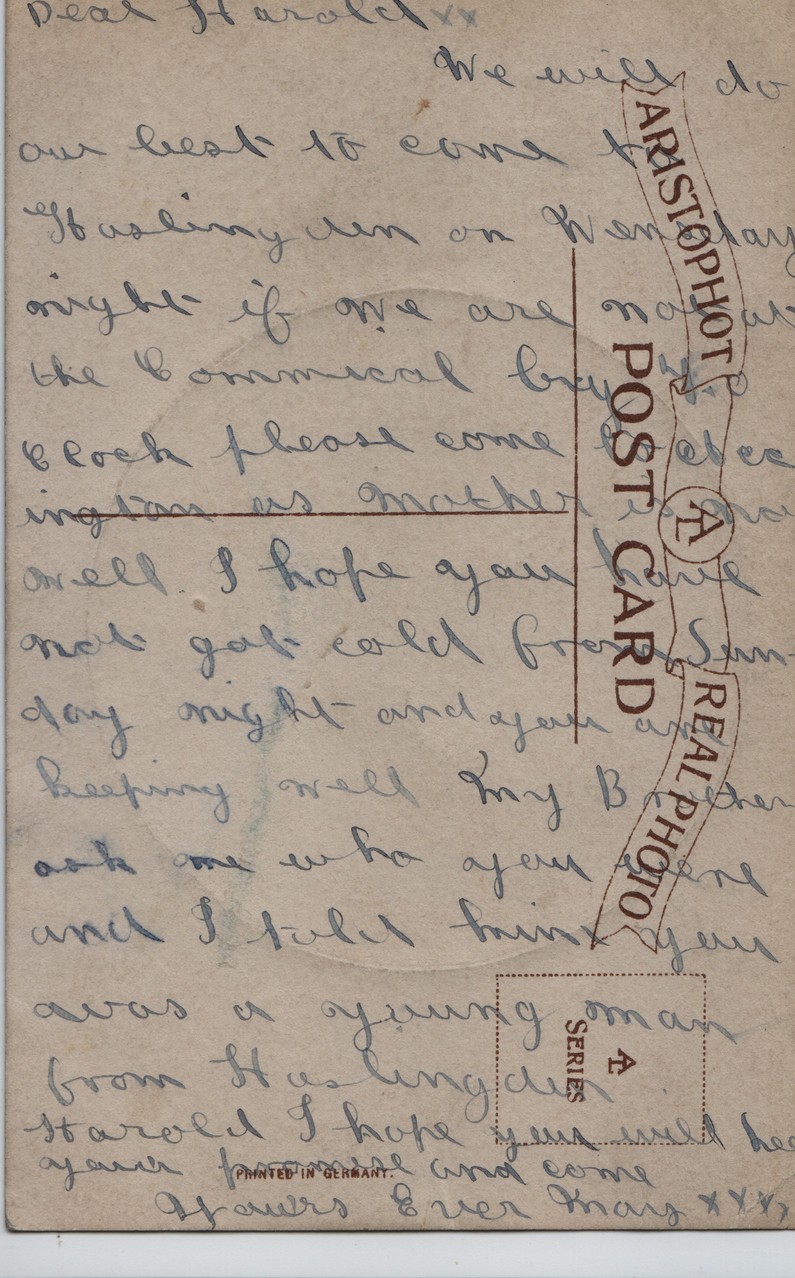 Dear Harold xx
We will do
our best to come to
Haslingden on Wensday
night if we are not at
the Commical by
Clock please come to Acc
ington as Mother is no
well I hope you have
not got cold from Sun-
day night and you are
keeping well My Brother
ask me who you were
and I told him you
was a young man
from Haslingden
Harold I hope you will
your promise and come
Yours Ever Mary xxxx
ARISTOPHOT
POST CARD
REAL PHOTO
SERIES
PRINTED IN GERMANY.